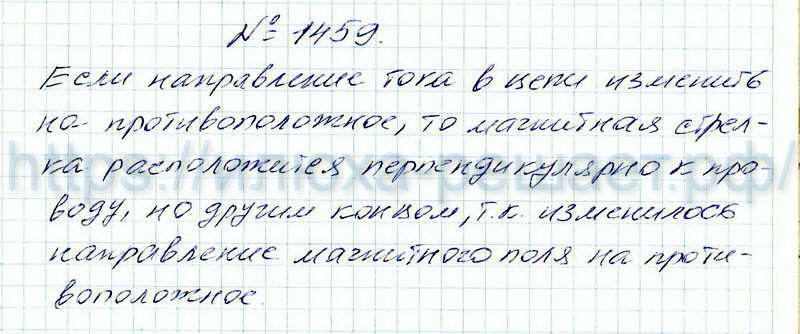 № 1459.
Если направление тока в цепи изменить
на противоположное, то магнитная стрел-
ка расположится перпендикулярно к про-
воду, но другим концом, т.к. изменилось
направление магнитного поля на проти-
воположное.